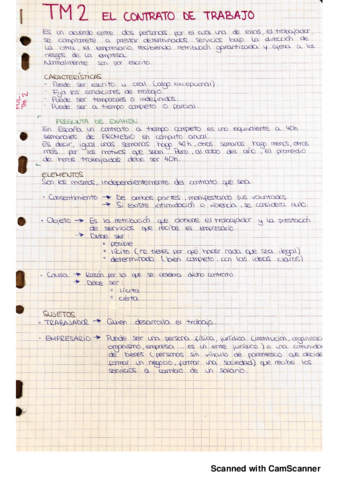 TM2 EL CONTRATO DE TRABAJO
Es un acuerdo entre dos personas por el cual una de ellas, el trabajador
se compromete a prestar determinados servicios bajo la dirección de
la otra, el empresario, recibiendo retribución garantizada y ajena a los
riesgos de la empresa.
Normalmente son por escrito.
CARACTERÍSTICAS
· Puede ser escrito u oral (algo excepcional)
· Fija las condiciones de trabajo
· Puede ser temporales o indefinidos
· Puede ser a tiempo completo o parcial.
TM 2
PREGUNTA DE EXAMEN
En España un contrato a tiempo completo es uno equivalente a 40h
semanales de PROMEDIO en cómputo anual.
Es decir, igual unas semanas hago 40h, otras semanas hago menos, otras
más... por los motivos que sean. Pero al cabo del año, el promedio
de horas trabajadas debe ser 40h.
ELEMENTOS
Son los mismos, independientemente del contrato que sea.
· Consentimiento → De ambas partes, manifestando sus voluntades
→ Si existe intimidación o violencia, se considera nulo.
· Objeto → Es la retribución que obtiene el trabajador y la prestación
de servicios que recibe el empresario
→ Debe ser
* posible
* lícito (no tienes por qué hacer nada que sea ilegal)
* determinado (bien completo, con las ideas claras)
· Causa → Razón por la que se celebra dicho contrato
→ Debe ser
* lícita
* cierta
SUJETOS
· TRABAJADOR → Quien desarrolla el trabajo.
· EMPRESARIO → Puede ser una persona física, jurídica (institución,
organismo, empresa... es un ente jurídico) o una
de bienes (personas sin vínculo de parentesco que decide
formar un negocio, formar una sociedad) que recibe los
servicios a cambio de un salario.
Scanned with CamScanner